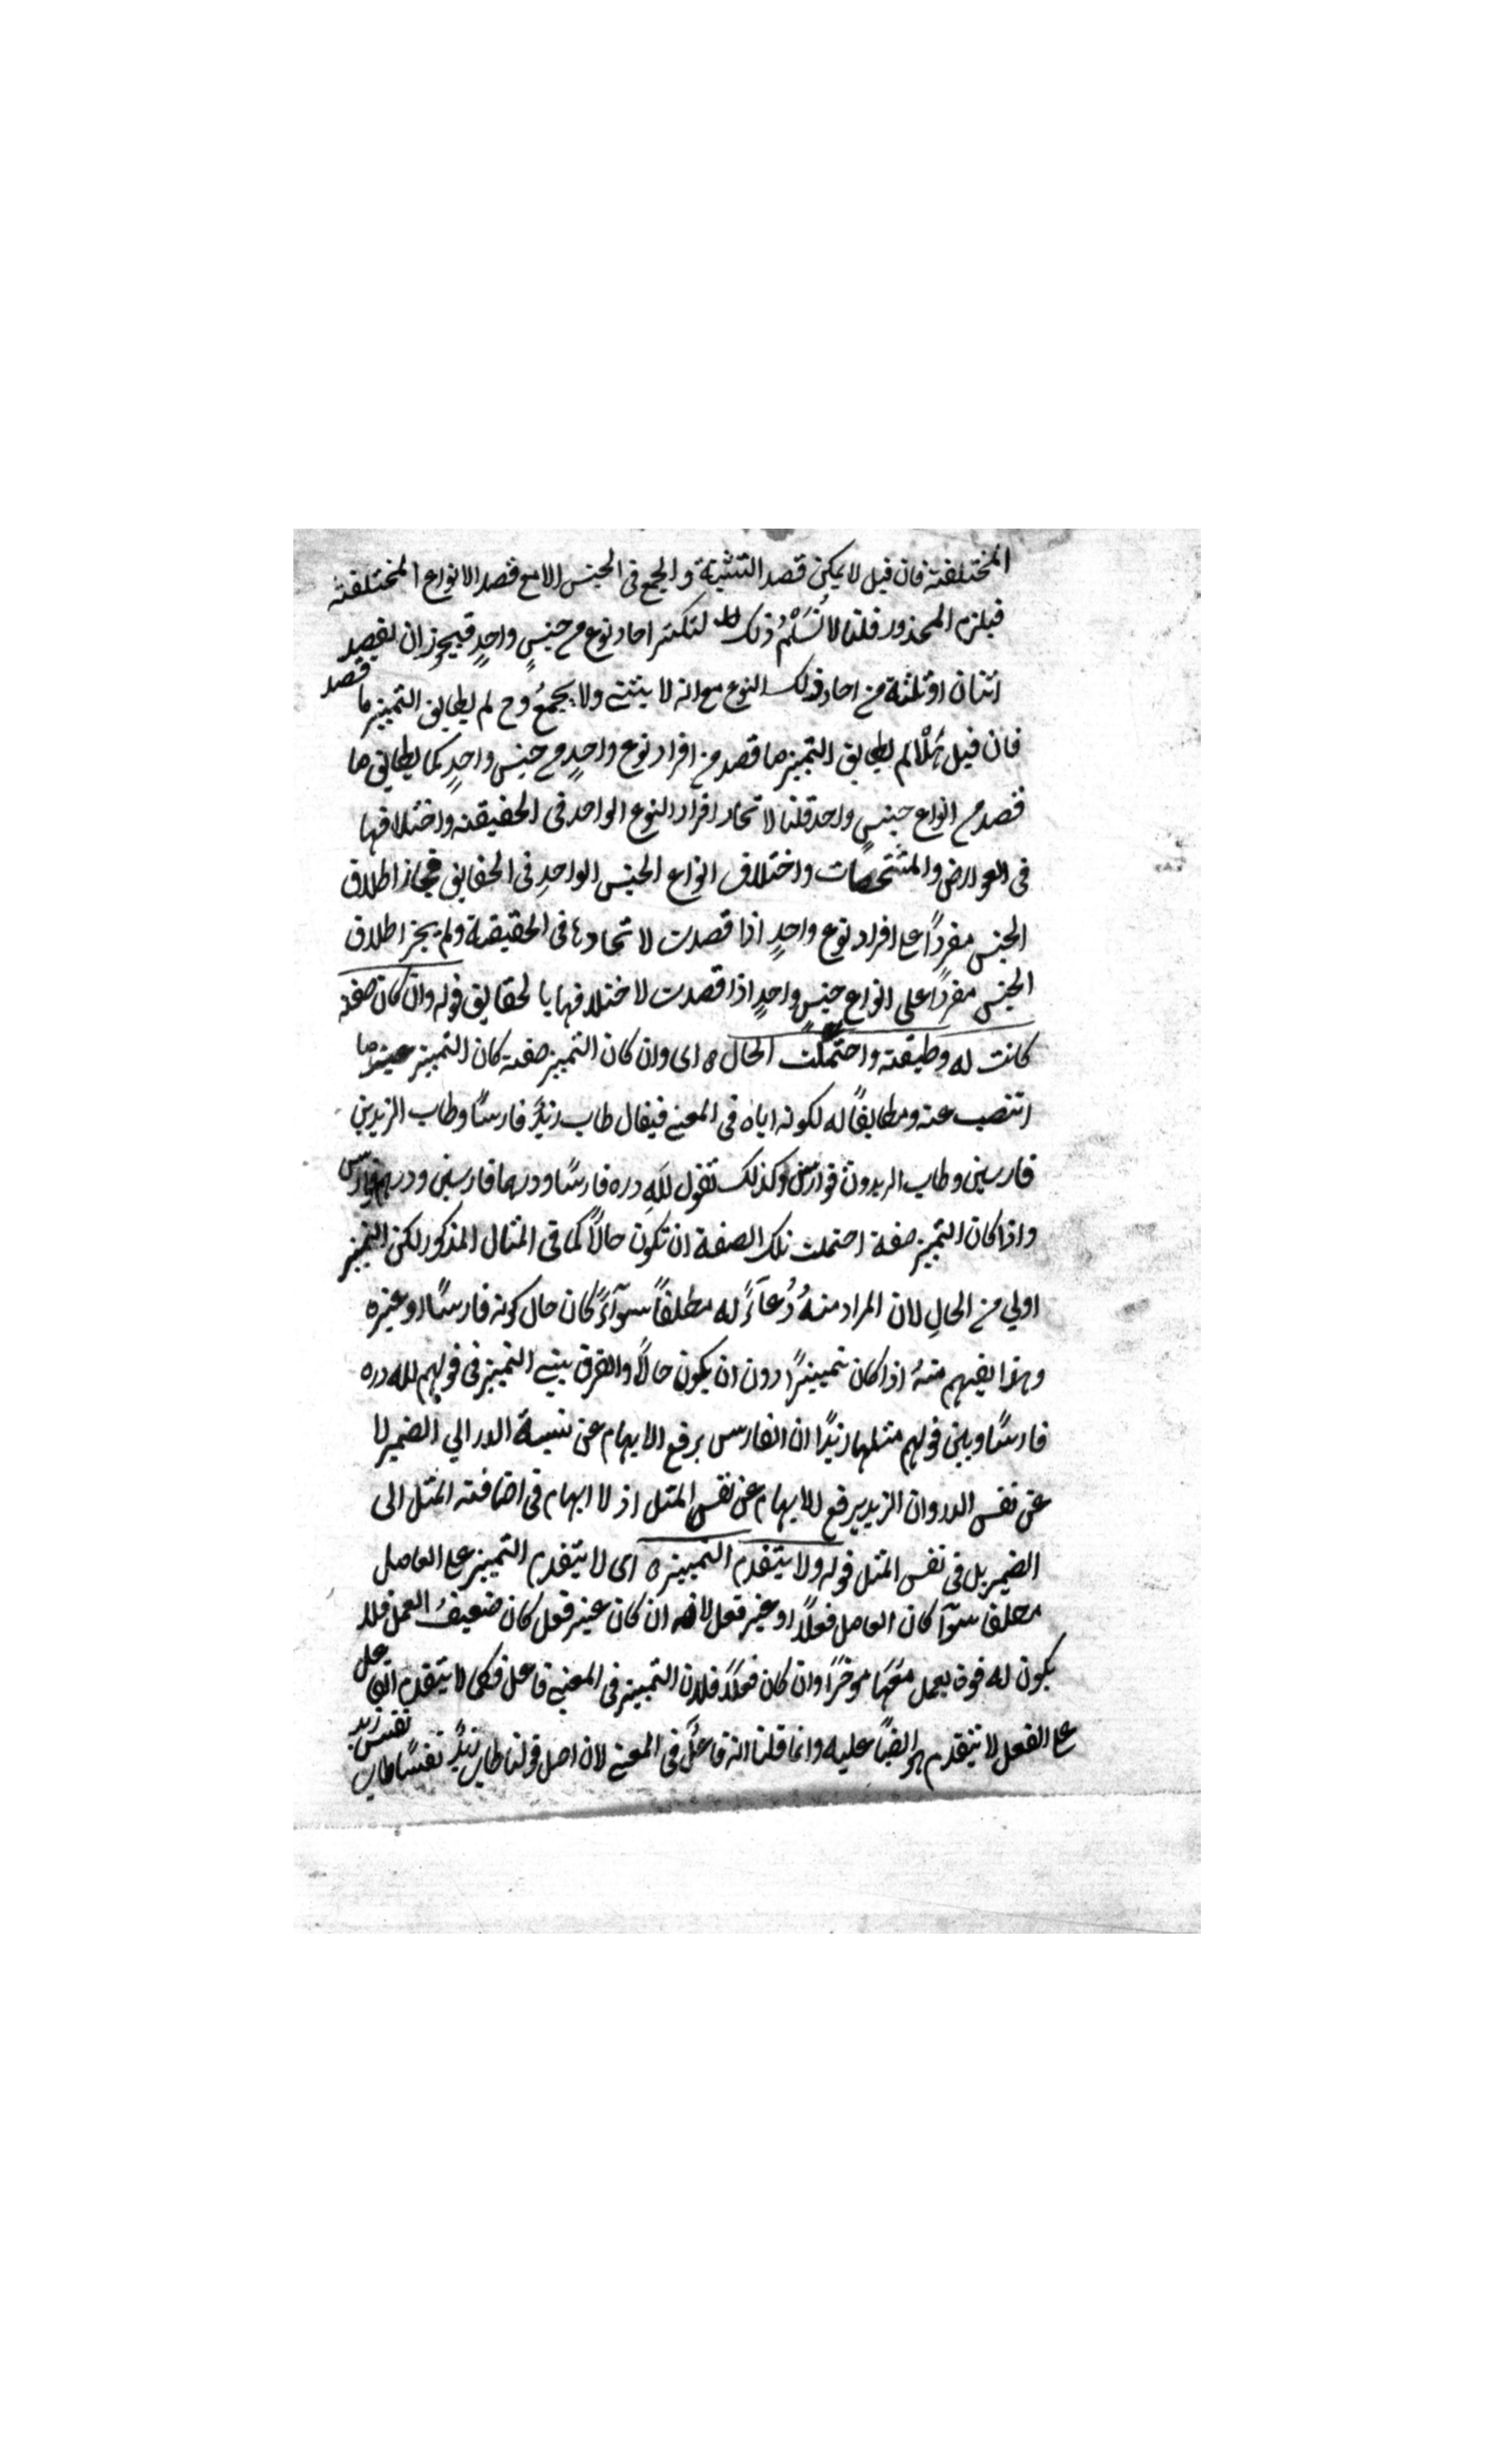 المختلفة فان قيل لا يمكن قصد التثنية والجمع في الجنس الا مع قصد الانواع المختلفة
فيلزم المحذور قلنا لا نُسَلِّمُ ذلك لتكثر احاد نوع من جنسٍ واحدٍ فيجوز ان يقصد
اثنان او ثلثة من احاد ذلك النوع مع انه لا يثنى ولا يجمعُ وح لم يطابق التمييز ما قصد
فان قيل هَلّا لم يطابق التمييز ما قصد من افراد نوع واحدٍ من جنس واحدٍ كما يطابق ما
قصد من انواع جنسٍ واحد قلنا لاتحاد افراد النوع الواحد في الحقيقة واختلافها
في العوارض والمشخصات واختلاف انواع الجنس الواحدِ في الحقايق فجاز اطلاق
الجنس مفردًا على افراد نوع واحدٍ اذا قصدت لاتحادها في الحقيقة ولم يجز اطلاق
الجنس مفردًا على انواع جنسٍ واحدٍ اذا قصدت لاختلافها بالحقايق قوله وان كان صفة
كانت له وطبقه واحتملت الحال ه اى وان كان التمييز صفة كان التمييز عين ما
انتصب عنه ومطابقًا له لكونه اياه في المعنى فيقال طاب زيدٌ فارسًا وطاب الزيدين
فارسين وطاب الزيدون فوارس وكذلك تقول للهِ دره فارسًا ودرهما فارسين ودرهم فوارس
واذا كان التمييز صفة احتملت تلك الصفة ان تكون حالًا كما في المثال المذكور لكن التمييز
اولي من الحالِ لان المراد منهُ دُعآءً له مطلقًا سوآءً كان حال كونه فارسًا او غيره
وهذا يفهم منهُ اذا كان تمييزًا دون ان يكون حالًا والفرق بين التمييز في قولهم لله دره
فارسًا وبين قولهم مثلها زيدًا ان الفارس يرفع الابهام عن نسبة الدر الي الضمير لا
عن نفس الدر وان الزيد يرفع الابهام عن نفس المثل اذ لا ابهام في اضافة المثل الى
الضمير بل في نفس المثل قوله ولا يتقدم التمييز ه اى لا يتقدم التمييز على العامل
مطلقا سوآ كان العامل فعلًا او غير فعل لانه ان كان غير فعل كان ضعيف العمل فلا
يكون له قوة يعمل معها موخرًا وان كان فعلًا فلان التمييز في المعنى فاعل فكما لا يتقدم الفاعل
على الفعل لا يتقدم هو ايضًا عليه وانما قلنا انه فاعلٌ في المعنى لان اصل قولنا طاب زيدٌ نفسًا طاب نفس زيد